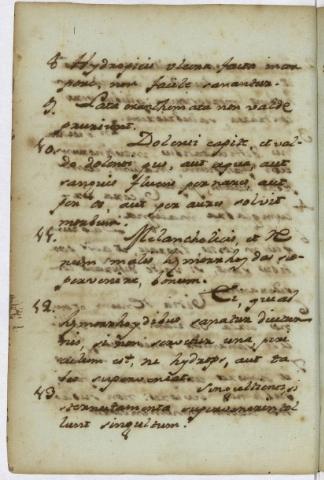 8 Hydropicis ulcera facta in cor
pore, non facile sanantur.
9. Lata exanthemata non valde
pruriunt.
10. Dolenti capite, et val-
de dolenti pus, aut aqua, aut
sanguis fluens per nares, aut
per os, aut per aures solvit
morbum.
11. Melancholicis, et
mala hymorrhoydas su
pervenire, bonum.
12. Ei, qui ab
hymorrhoydibus sanatur diutur
nis, si non servetur una, peri
culum est, ne hydrops, aut ta
bes superveniat.
13. Singultienti, si
sternutamenta supervenerint, tol
lunt singultum.